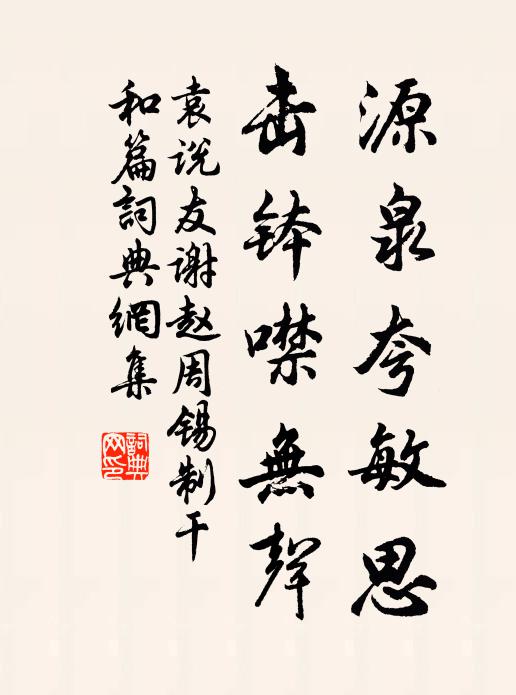 源泉夸敏思
击钵噤無聲
袁说友谢赵周锡制干
和篇詞典網集
詞典网印